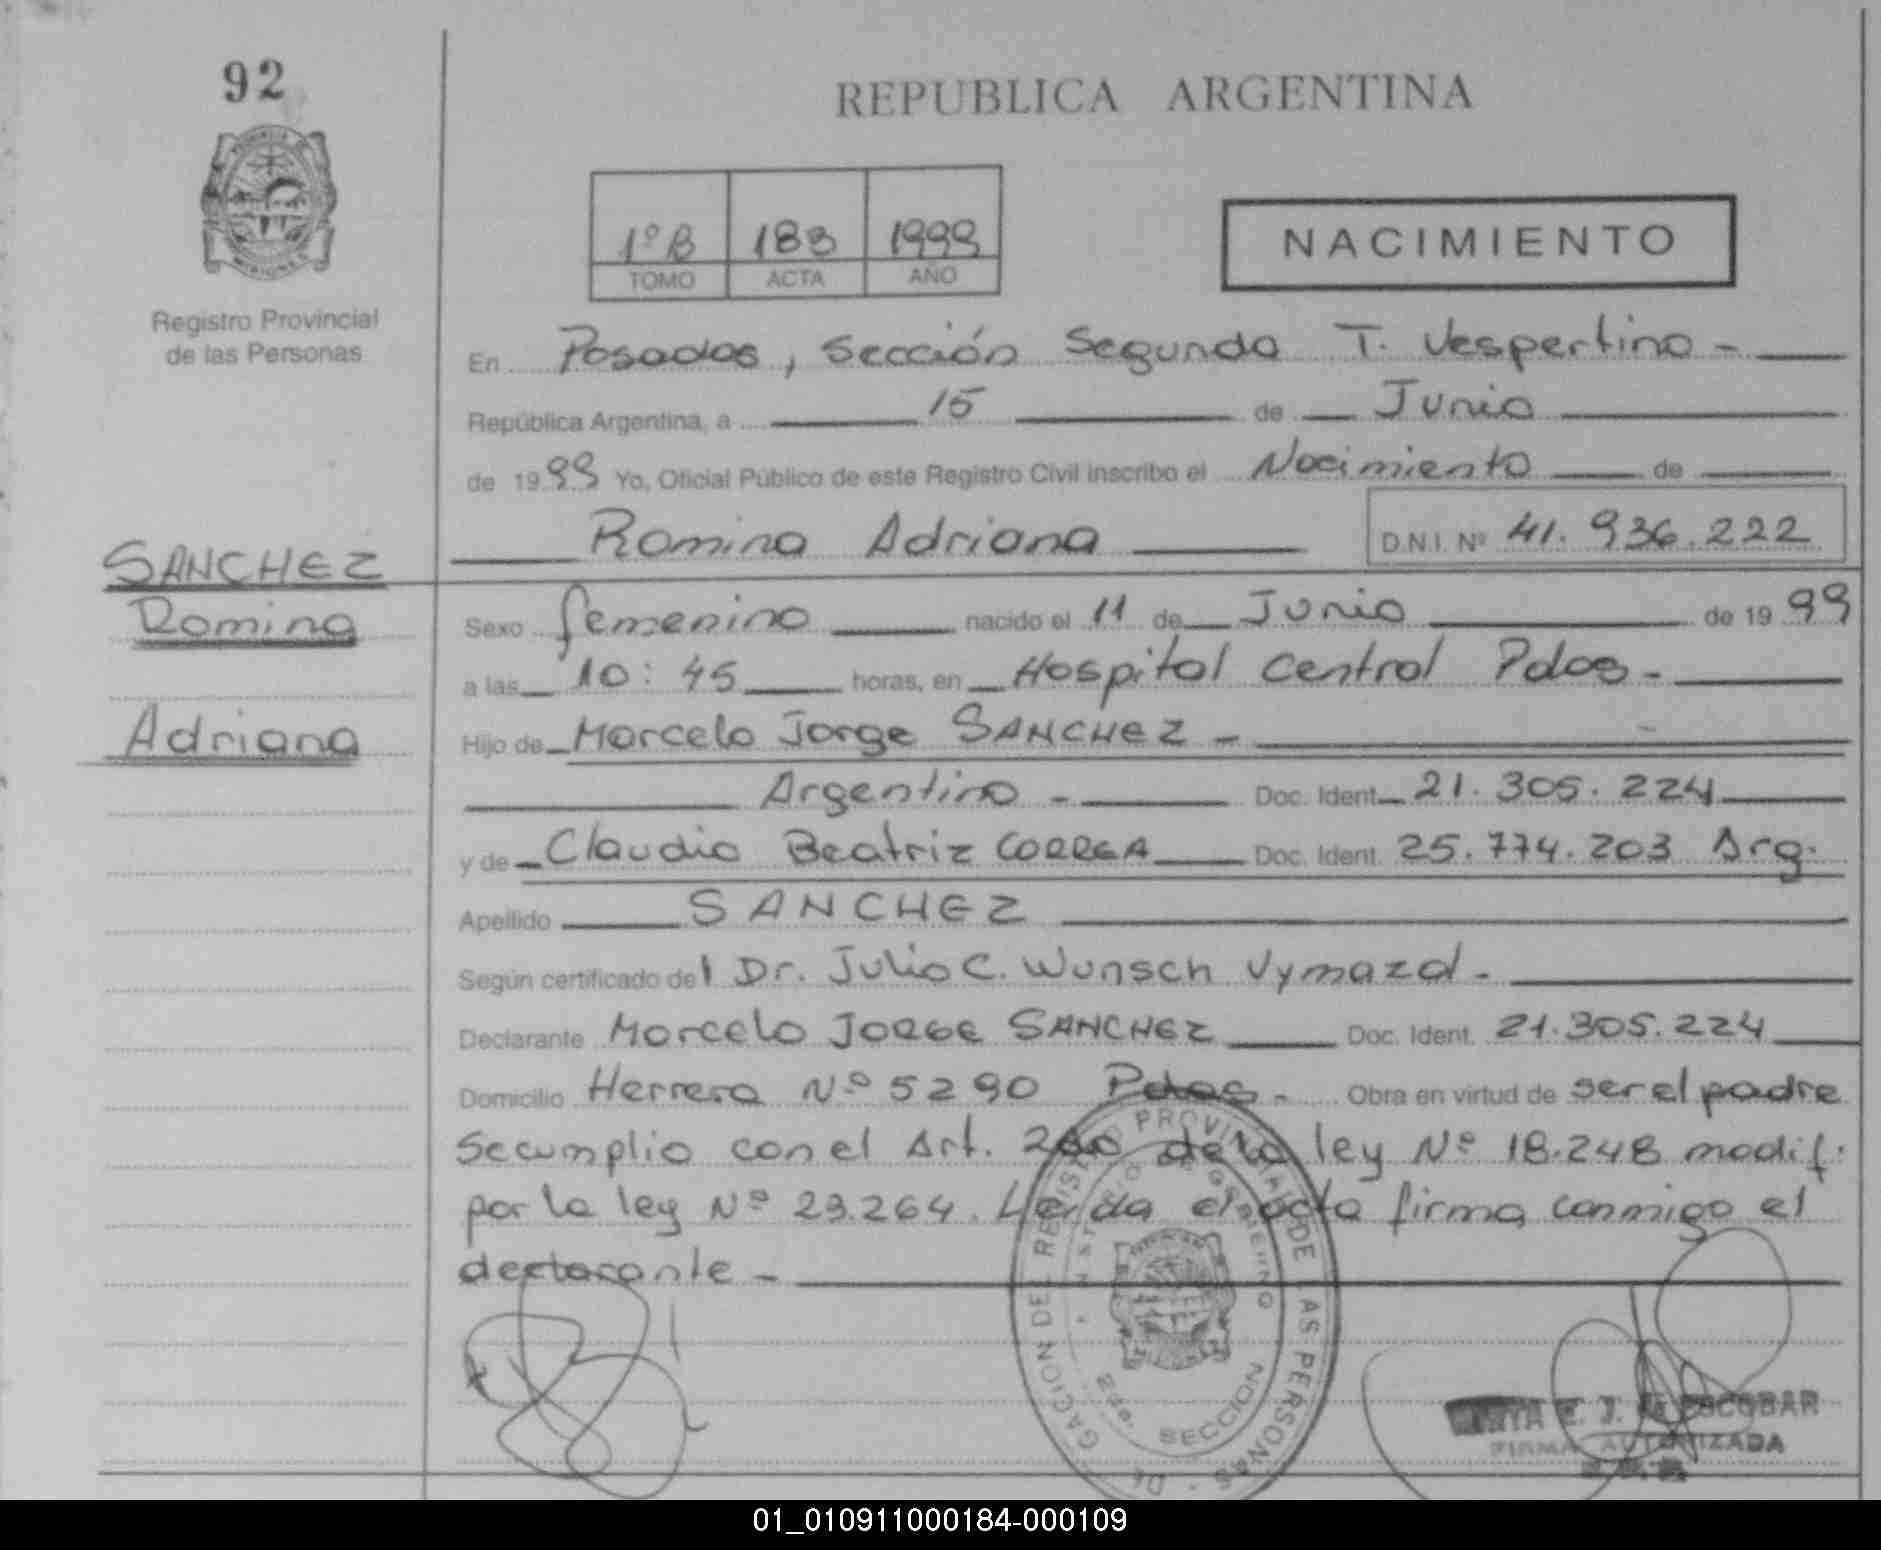 92
REPUBLICA ARGENTINA
1º B 188 1999
TOMO ACTA AÑO
NACIMIENTO
Registro Provincial
de las Personas
En Posadas, Sección Segunda T. Vespertino -
República Argentina, a 15 de Junio
de 1999 Yo, Oficial Público de este Registro Civil inscribo el Nacimiento de
Romina Adriana D.N.I. Nº 41.936.222
SANCHEZ
Romina
Adriana
Sexo femenino nacido el 11 de Junio de 1999
a las 10:45 horas, en Hospital Central Pdas -
Hijo de Marcelo Jorge SANCHEZ -
Argentino - Doc. Ident. 21.305.224
y de Claudia Beatriz CORREA Doc. Ident. 25.774.203 Arg.
Apellido SANCHEZ
Según certificado del Dr. Julio C. Wunsch Vymazal -
Declarante Marcelo JORGE SANCHEZ Doc. Ident. 21.305.224
Domicilio Herrera Nº 5290 Pdas - Obra en virtud de ser el padre
Se cumplio con el Art. 2do de la ley Nº 18.248 modif.
por la ley Nº 23.264. Leida el acta firma conmigo el
declarante -
REGISTRO PROVINCIAL DE LAS PERSONAS
2da. SECCION
ESCOBAR
FIRMA AUTORIZADA
01_010911000184-000109